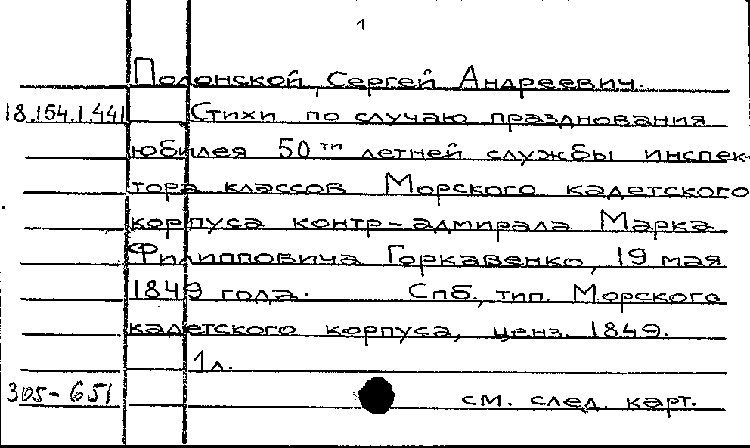 1
Полонской, Сергей Андреевич.
18.154.1.441 Стихи по случаю празднования
юбилея 50ти летней службы инспек-
тора классов Морского кадетского
корпуса контр-адмирала Марка
Филипповича Горкавенко, 19 мая
1849 года. Спб., тип. Морского
кадетского корпуса, ценз. 1849.
1л.
305-651 см. след. карт.